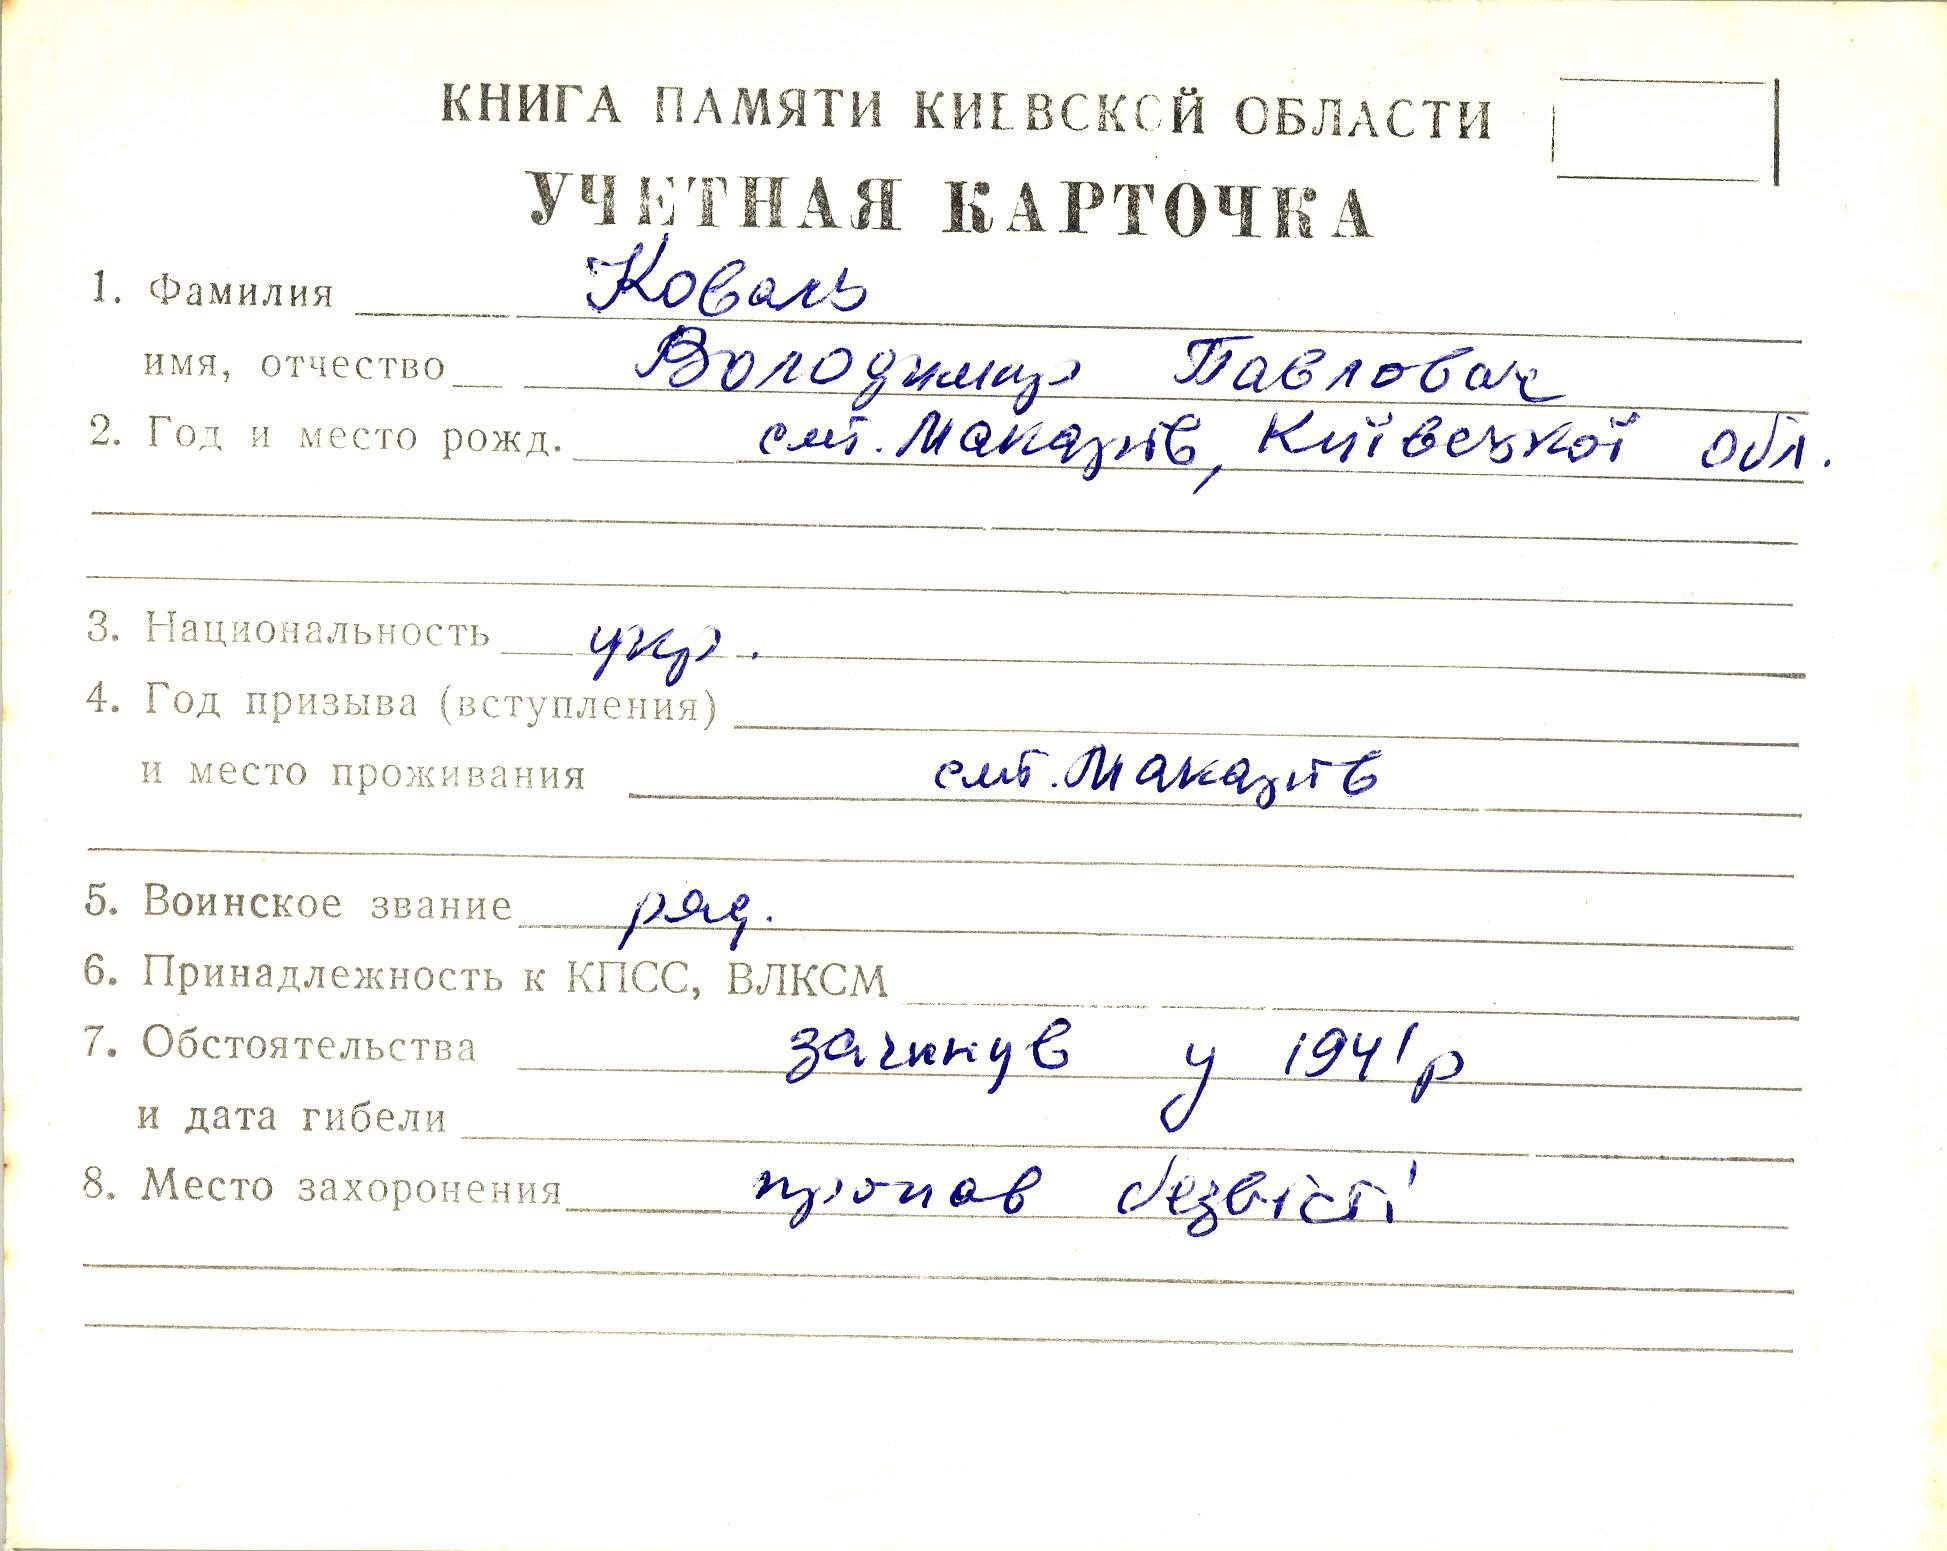 КНИГА ПАМЯТИ КИЕВСКОЙ ОБЛАСТИ
УЧЕТНАЯ КАРТОЧКА
1. Фамилия Коваль
имя, отчество Володимир Павлович
2. Год и место рожд. смт. Макарів, Київської обл.
3. Национальность укр.
4. Год призыва (вступления)
и место проживания смт. Макарів
5. Воинское звание ряд.
6. Принадлежность к КПСС, ВЛКСМ
7. Обстоятельства загинув у 1941р
и дата гибели
8. Место захоронения пропав безвісті